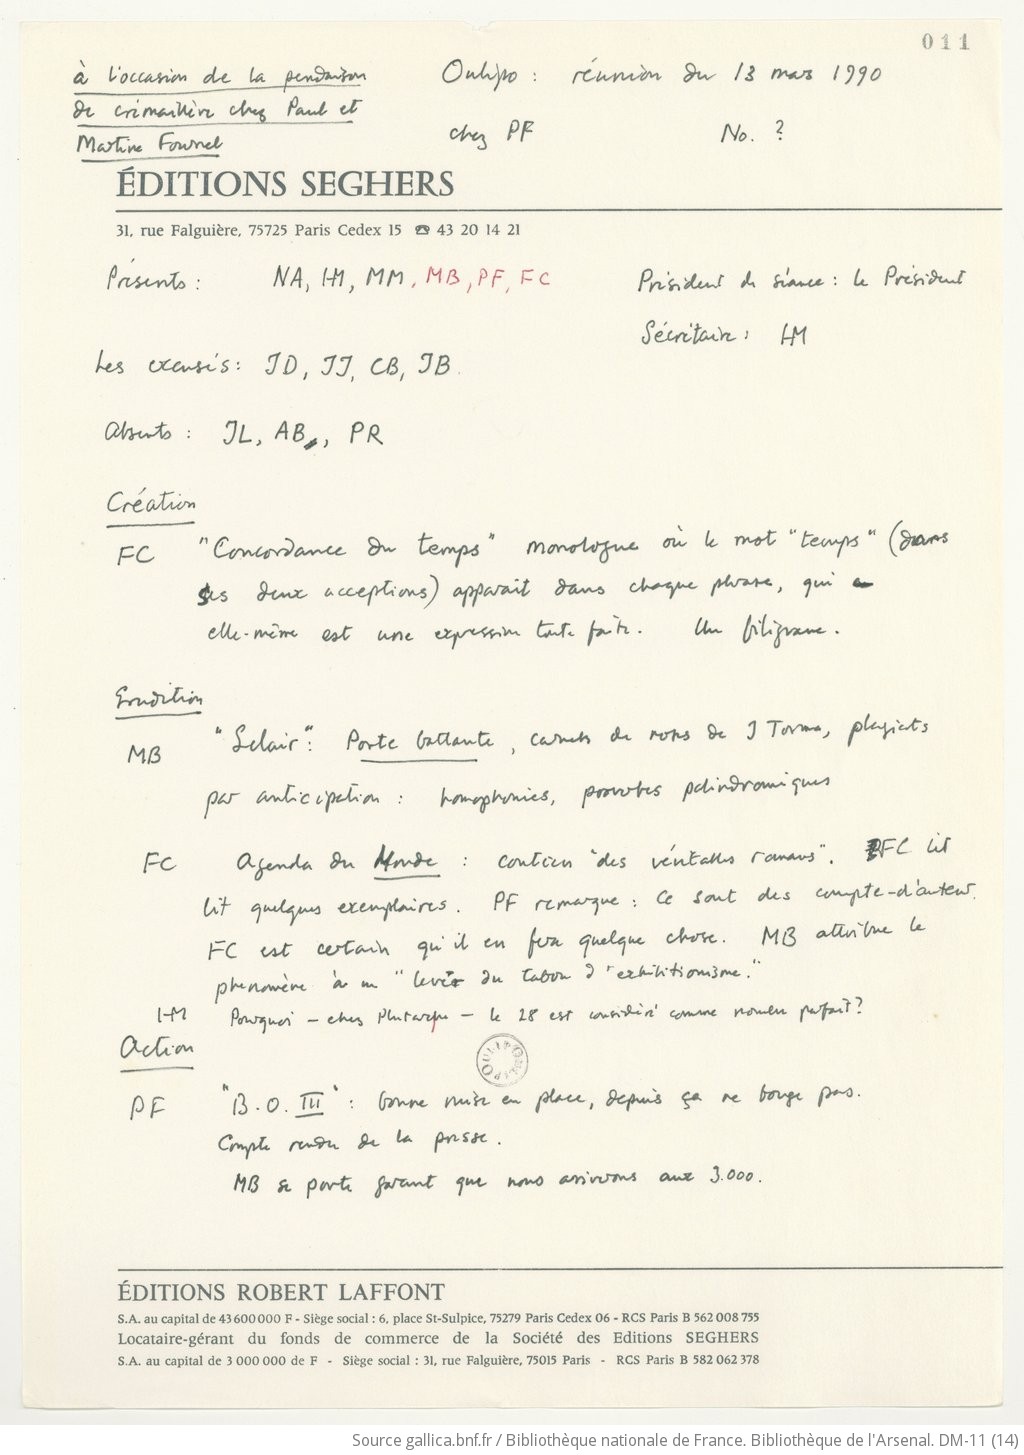 011
à l'occasion de la pendaison
de crémaillère chez Paul et
Martine Fournel
Oulipo : réunion du 13 mars 1990
chez PF No. ?
ÉDITIONS SEGHERS
31, rue Falguière, 75725 Paris Cedex 15 ☎ 43 20 14 21
Présents : NA, HM, MM, MB, PF, FC
Président de séance : le Président
Sécrétaire : HM
Les excusés : JD, JJ, CB, JB.
Absents : JL, AB, PR
Création
FC "Concordance du temps" monologue où le mot "temps" (dans
ses deux acceptions) apparait dans chaque phrase, qui
elle-même est une expression toute faite. Un filigrane.
Erudition
MB "Selair" : Porte battante, carnets de notes de J Torma, plagiats
par anticipation : homophonies, proverbes palindromiques
FC Agenda du Monde : contien "des véritables romans". FC lit
lit quelques exemplaires. PF remarque : Ce sont des compte-d'auteur.
FC est certain qu'il en fera quelque chose. MB attribue le
phenomère à un "levée du tabou d'exhibitionisme."
HM Pourquoi – chez Plutarque – le 28 est considéré comme nombre parfait ?
Action
OULIPO
PF "B.O. III" : bonne mise en place, depuis ça ne bouge pas.
Compte rendu de la presse.
MB se porte garant que nous arriverons aux 3.000.
ÉDITIONS ROBERT LAFFONT
S.A. au capital de 43 600 000 F - Siège social : 6, place St-Sulpice, 75279 Paris Cedex 06 - RCS Paris B 562 008 755
Locataire-gérant du fonds de commerce de la Société des Editions SEGHERS
S.A. au capital de 3 000 000 de F - Siège social : 31, rue Falguière, 75015 Paris - RCS Paris B 582 062 378
Source gallica.bnf.fr / Bibliothèque nationale de France. Bibliothèque de l'Arsenal. DM-11 (14)